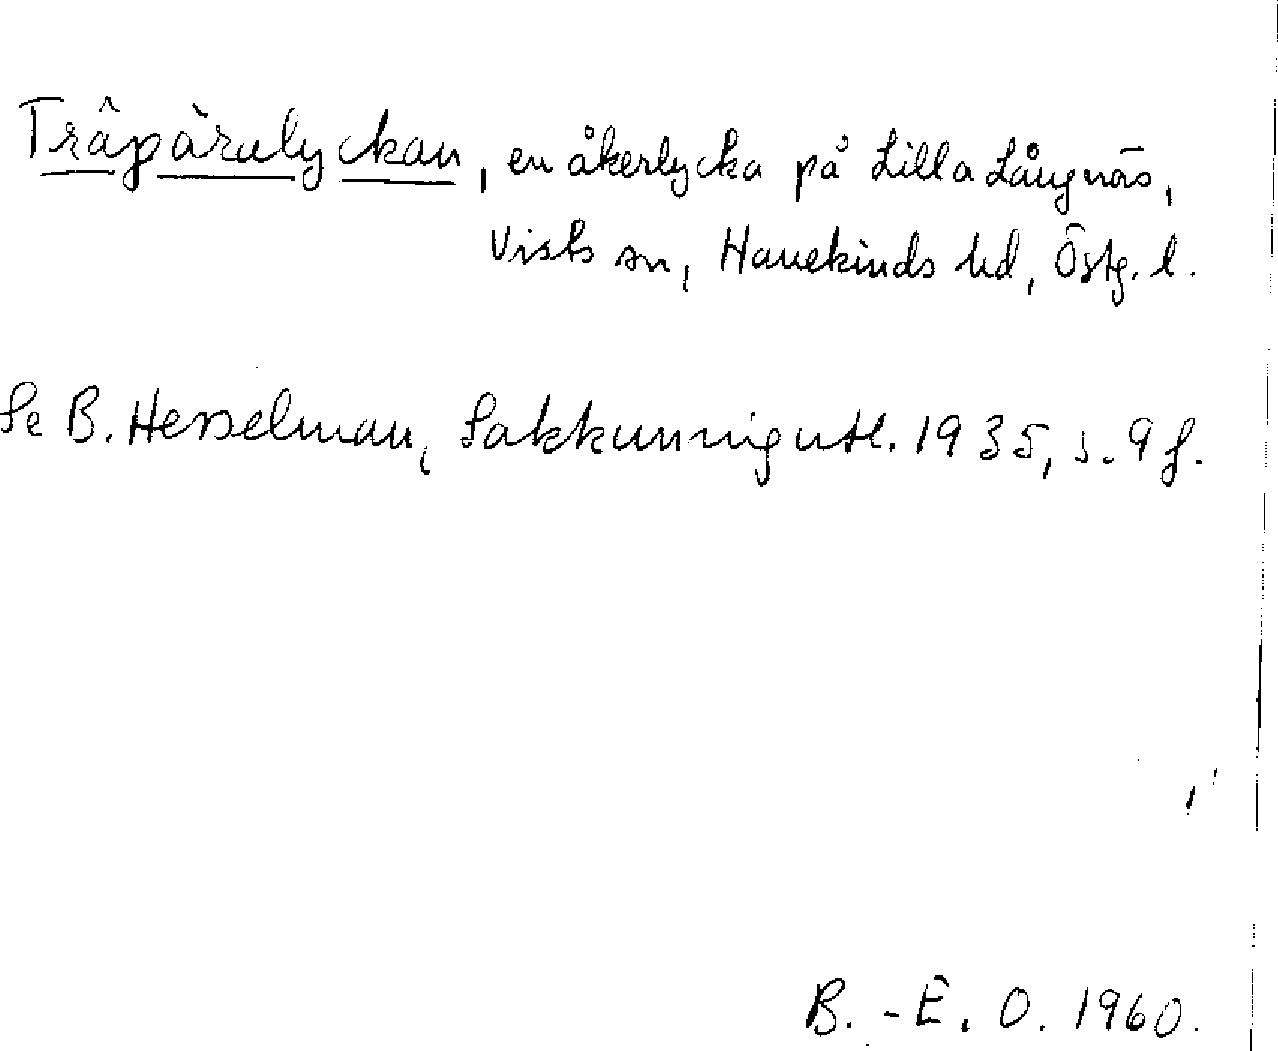 Trâpàralyckan, en åkerlycka på Lilla Långnäs,
Vists sn, Hanekinds hd, Östg. l.
Se B. Hesselman, Sakkunnigutl. 1935, s. 9 f.
B.-E. O. 1960.